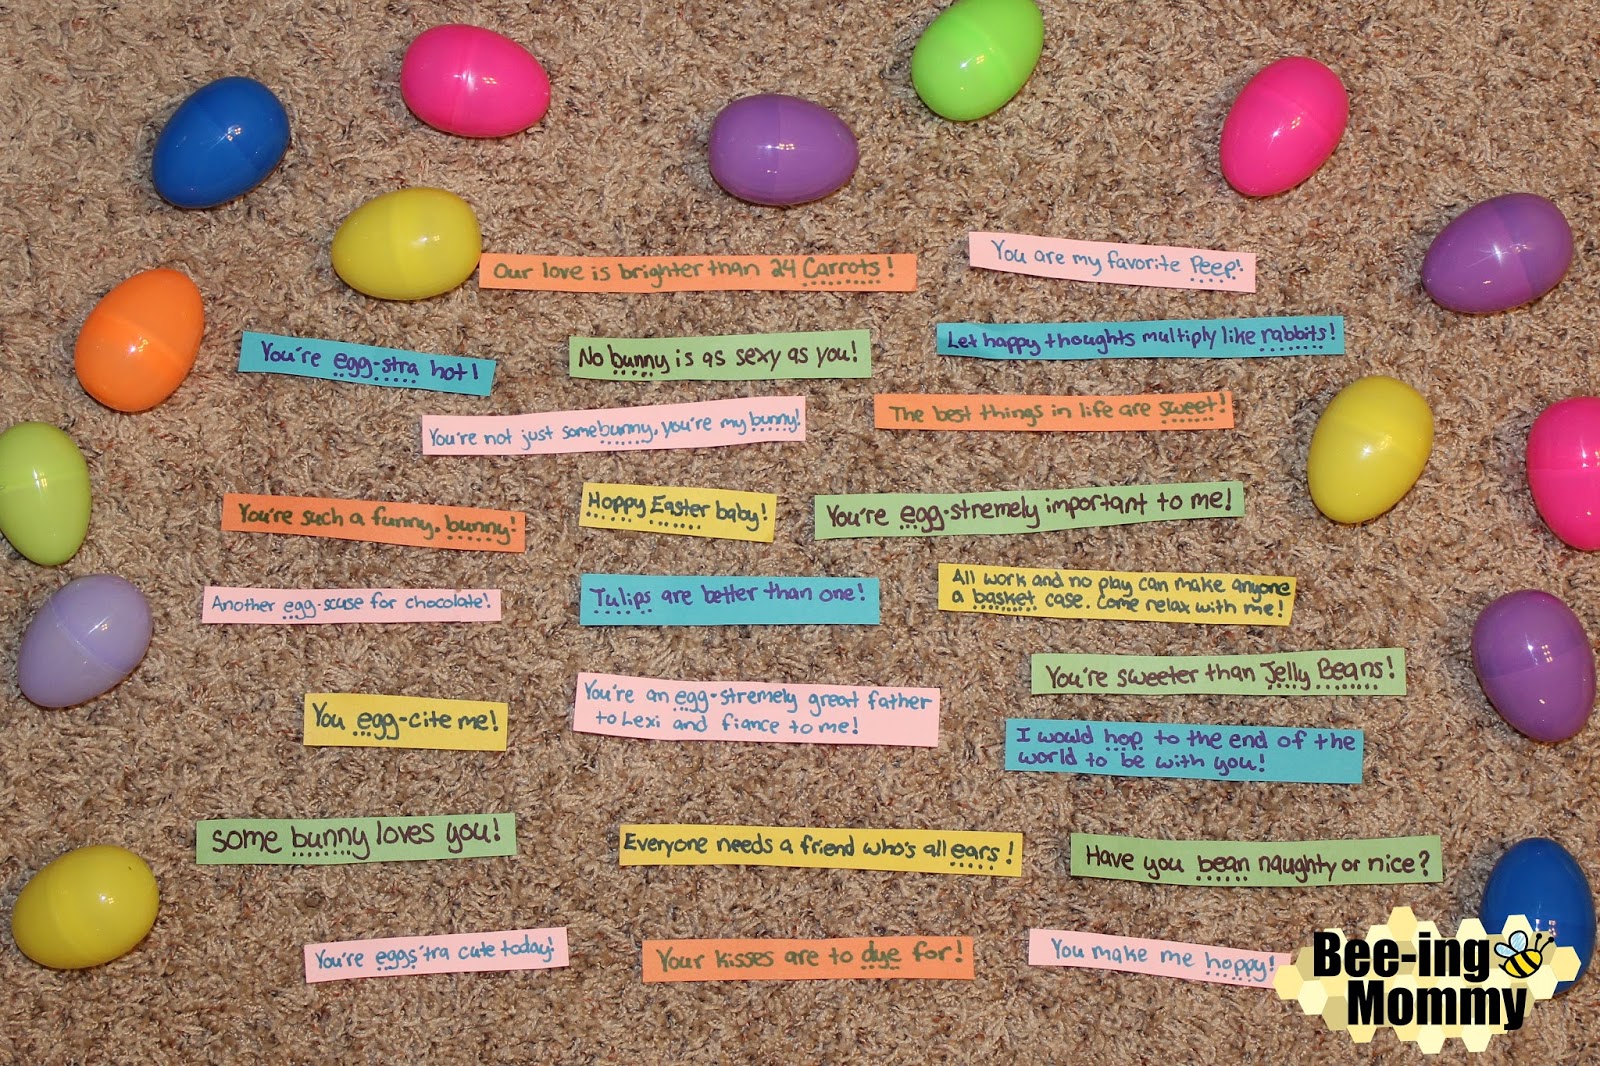 Our love is brighter than 24 Carrots!
You are my favorite Peep!
You're egg-stra hot!
No bunny is as sexy as you!
Let happy thoughts multiply like rabbits!
You're not just somebunny, you're my bunny!
The best things in life are sweet!
You're such a funny, bunny!
Hoppy Easter baby!
You're egg-stremely important to me!
Another egg-scuse for chocolate!
Tulips are better than one!
All work and no play can make anyone
a basket case. Come relax with me!
You're sweeter than Jelly Beans!
You egg-cite me!
You're an egg-stremely great father
to Lexi and fiance to me!
I would hop to the end of the
world to be with you!
some bunny loves you!
Everyone needs a friend who's all ears!
Have you bean naughty or nice?
You're eggs'tra cute today!
Your kisses are to dye for!
You make me hoppy!
Bee-ing
Mommy